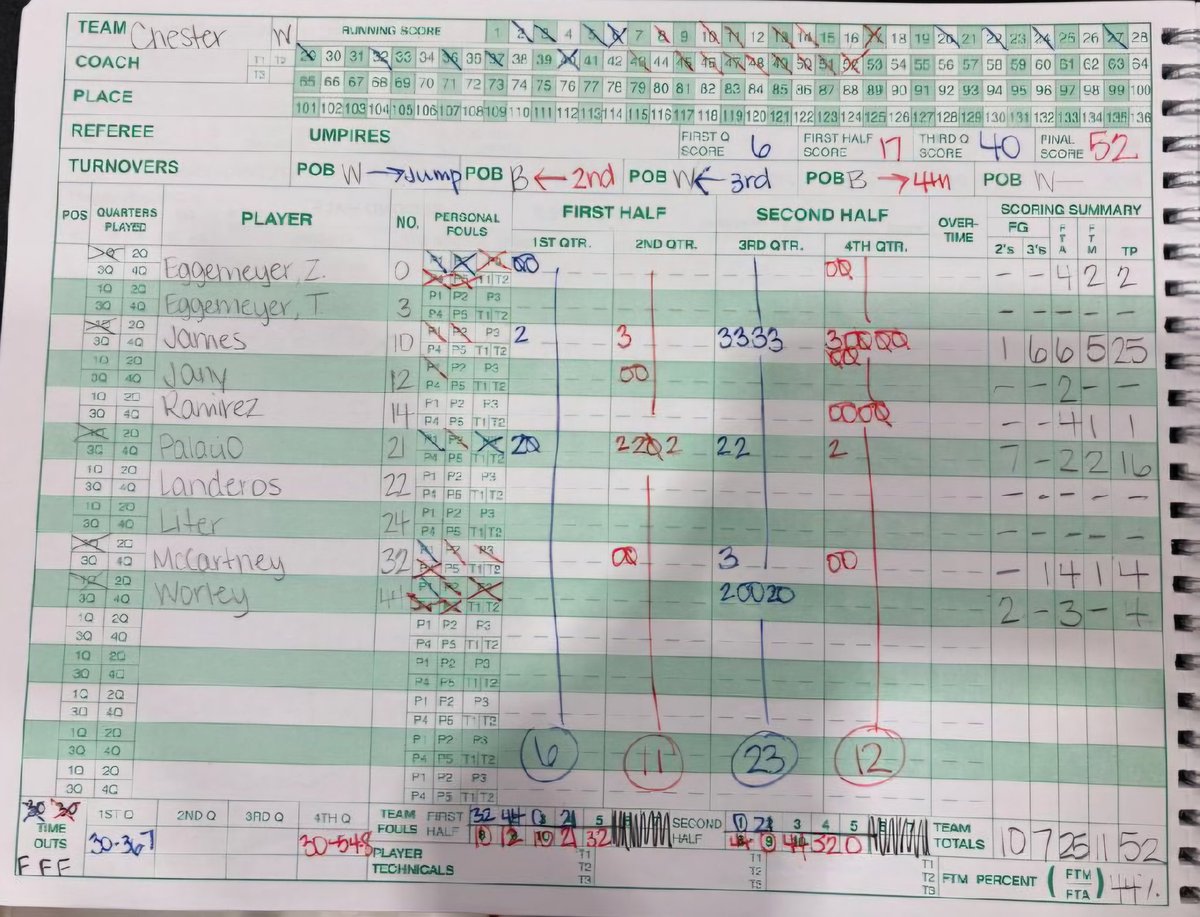 TEAM Chester W RUNNING SCORE 1 2 3 4 5 6 7 8 9 10 11 12 13 14 15 16 17 18 19 20 21 22 23 24 25 26 27 28
COACH T1 T2 T3 29 30 31 32 33 34 35 36 37 38 39 40 41 42 43 44 45 46 47 48 49 50 51 52 53 54 55 56 57 58 59 60 61 62 63 64
65 66 67 68 69 70 71 72 73 74 75 76 77 78 79 80 81 82 83 84 85 86 87 88 89 90 91 92 93 94 95 96 97 98 99 100
PLACE 101 102 103 104 105 106 107 108 109 110 111 112 113 114 115 116 117 118 119 120 121 122 123 124 125 126 127 128 129 130 131 132 133 134 135 136
REFEREE UMPIRES FIRST Q SCORE 6 FIRST HALF SCORE 17 THIRD Q SCORE 40 FINAL SCORE 52
TURNOVERS POB W → Jump POB B ← 2nd POB W ← 3rd POB B → 4th POB W
POS QUARTERS PLAYED PLAYER NO. PERSONAL FOULS FIRST HALF SECOND HALF OVER-TIME SCORING SUMMARY
1ST QTR. 2ND QTR. 3RD QTR. 4TH QTR. FG 2's 3's FTA FTM TP
1Q 2Q 3Q 4Q Eggemeyer, Z. 0 P1 P2 P3 P4 P5 T1 T2 00 00 - - 4 2 2
1Q 2Q 3Q 4Q Eggemeyer, T. 3 P1 P2 P3 P4 P5 T1 T2 - - - - -
1Q 2Q 3Q 4Q James 10 P1 P2 P3 P4 P5 T1 T2 2 3 3333 30000 00 1 6 6 5 25
1Q 2Q 3Q 4Q Jany 12 P1 P2 P3 P4 P5 T1 T2 00 - - 2 - -
1Q 2Q 3Q 4Q Ramirez 14 P1 P2 P3 P4 P5 T1 T2 0000 - - 4 1 1
1Q 2Q 3Q 4Q 21 P1 P2 P3 P4 P5 T1 T2 20 2202 22 2 7 - 2 2 16
1Q 2Q 3Q 4Q Landeros 22 P1 P2 P3 P4 P5 T1 T2 - - - - -
1Q 2Q 3Q 4Q Liter 24 P1 P2 P3 P4 P5 T1 T2 - - - - -
1Q 2Q 3Q 4Q McCartney 32 P1 P2 P3 P4 P5 T1 T2 00 3 00 - 1 4 1 4
1Q 2Q 3Q 4Q Worley 44 P1 P2 P3 P4 P5 T1 T2 20020 2 - 3 - 4
1Q 2Q 3Q 4Q P1 P2 P3 P4 P5 T1 T2
1Q 2Q 3Q 4Q P1 P2 P3 P4 P5 T1 T2
1Q 2Q 3Q 4Q P1 P2 P3 P4 P5 T1 T2
1Q 2Q 3Q 4Q P1 P2 P3 P4 P5 T1 T2 6 11 23 12
1Q 2Q 3Q 4Q P1 P2 P3 P4 P5 T1 T2
30 30 1ST Q 2ND Q 3RD Q 4TH Q TEAM FOULS FIRST HALF 32 44 0 21 5 SECOND HALF 0 21 3 4 5 TEAM TOTALS 10 7 25 11 52
TIME OUTS 30-367 30-548 0 12 10 21 32 44 0 44 32 0
F F F PLAYER TECHNICALS T1 T2 T3 T1 T2 T3 T1 T2 T3 FTM PERCENT (FTM/FTA) 44%